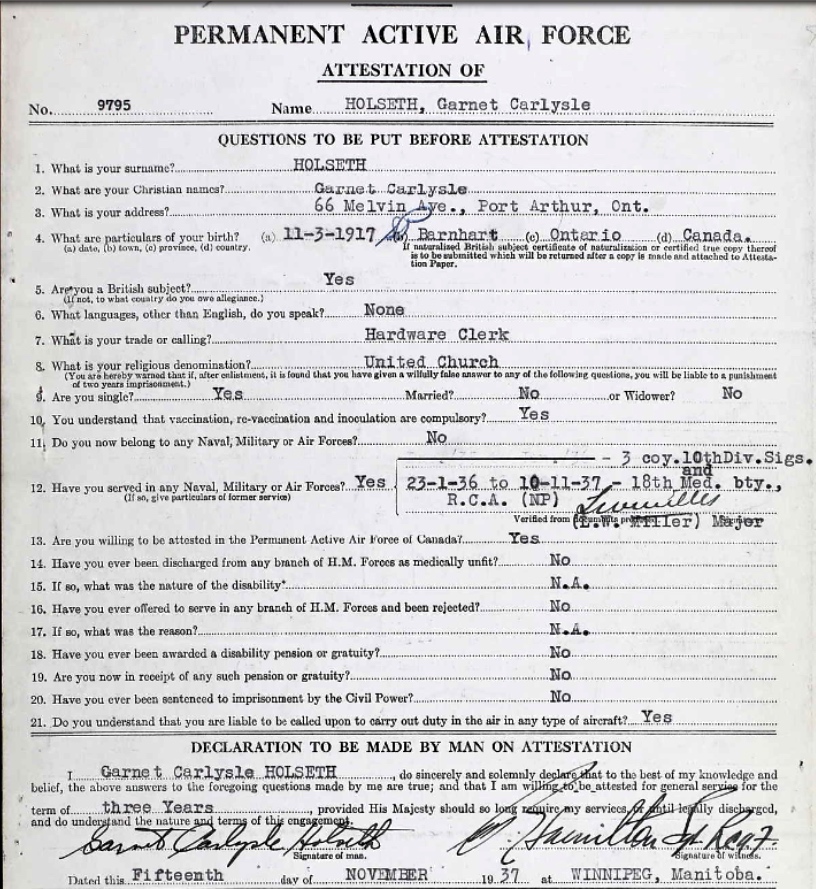 PERMANENT ACTIVE AIR FORCE
ATTESTATION OF
No. 9795 Name HOLSETH, Garnet Carlysle
QUESTIONS TO BE PUT BEFORE ATTESTATION
1. What is your surname? HOLSETH
2. What are your Christian names? Garnet Carlysle
3. What is your address? 66 Melvin Ave., Port Arthur, Ont.
4. What are particulars of your birth? (a) 11-3-1917 (b) Barnhart (c) Ontario (d) Canada.
(a) date, (b) town, (c) province, (d) country. If naturalized British subject certificate of naturalization or certified true copy thereof
is to be submitted which will be returned after a copy is made and attached to Attesta-
tion Paper.
5. Are you a British subject? Yes
(If not, to what country do you owe allegiance.)
6. What languages, other than English, do you speak? None
7. What is your trade or calling? Hardware Clerk
8. What is your religious denomination? United Church
(You are hereby warned that if, after enlistment, it is found that you have given a wilfully false answer to any of the following questions, you will be liable to a punishment
of two years imprisonment.)
9. Are you single? Yes Married? No or Widower? No
10. You understand that vaccination, re-vaccination and inoculation are compulsory? Yes
11. Do you now belong to any Naval, Military or Air Forces? No
- 3 coy.10thDiv.Sigs.
and
12. Have you served in any Naval, Military or Air Forces? Yes 23-1-36 to 10-11-37 - 18th Med. bty.,
(If so, give particulars of former service) R.C.A. (NP)
Verified from documents (L.W. Miller) Major
13. Are you willing to be attested in the Permanent Active Air Force of Canada? Yes
14. Have you ever been discharged from any branch of H.M. Forces as medically unfit? No
15. If so, what was the nature of the disability? N.A.
16. Have you ever offered to serve in any branch of H.M. Forces and been rejected? No
17. If so, what was the reason? N.A.
18. Have you ever been awarded a disability pension or gratuity? No
19. Are you now in receipt of any such pension or gratuity? No
20. Have you ever been sentenced to imprisonment by the Civil Power? No
21. Do you understand that you are liable to be called upon to carry out duty in the air in any type of aircraft? Yes
DECLARATION TO BE MADE BY MAN ON ATTESTATION
I Garnet Carlysle HOLSETH, do sincerely and solemnly declare that to the best of my knowledge and
belief, the above answers to the foregoing questions made by me are true; and that I am willing to be attested for general service for the
term of three Years, provided His Majesty should so long require my services, or until legally discharged,
and do understand the nature and terms of this engagement.
Garnet Carlysle Holseth Hamilton
Signature of man. Signature of witness.
Dated this Fifteenth day of NOVEMBER 1937 at WINNIPEG, Manitoba.